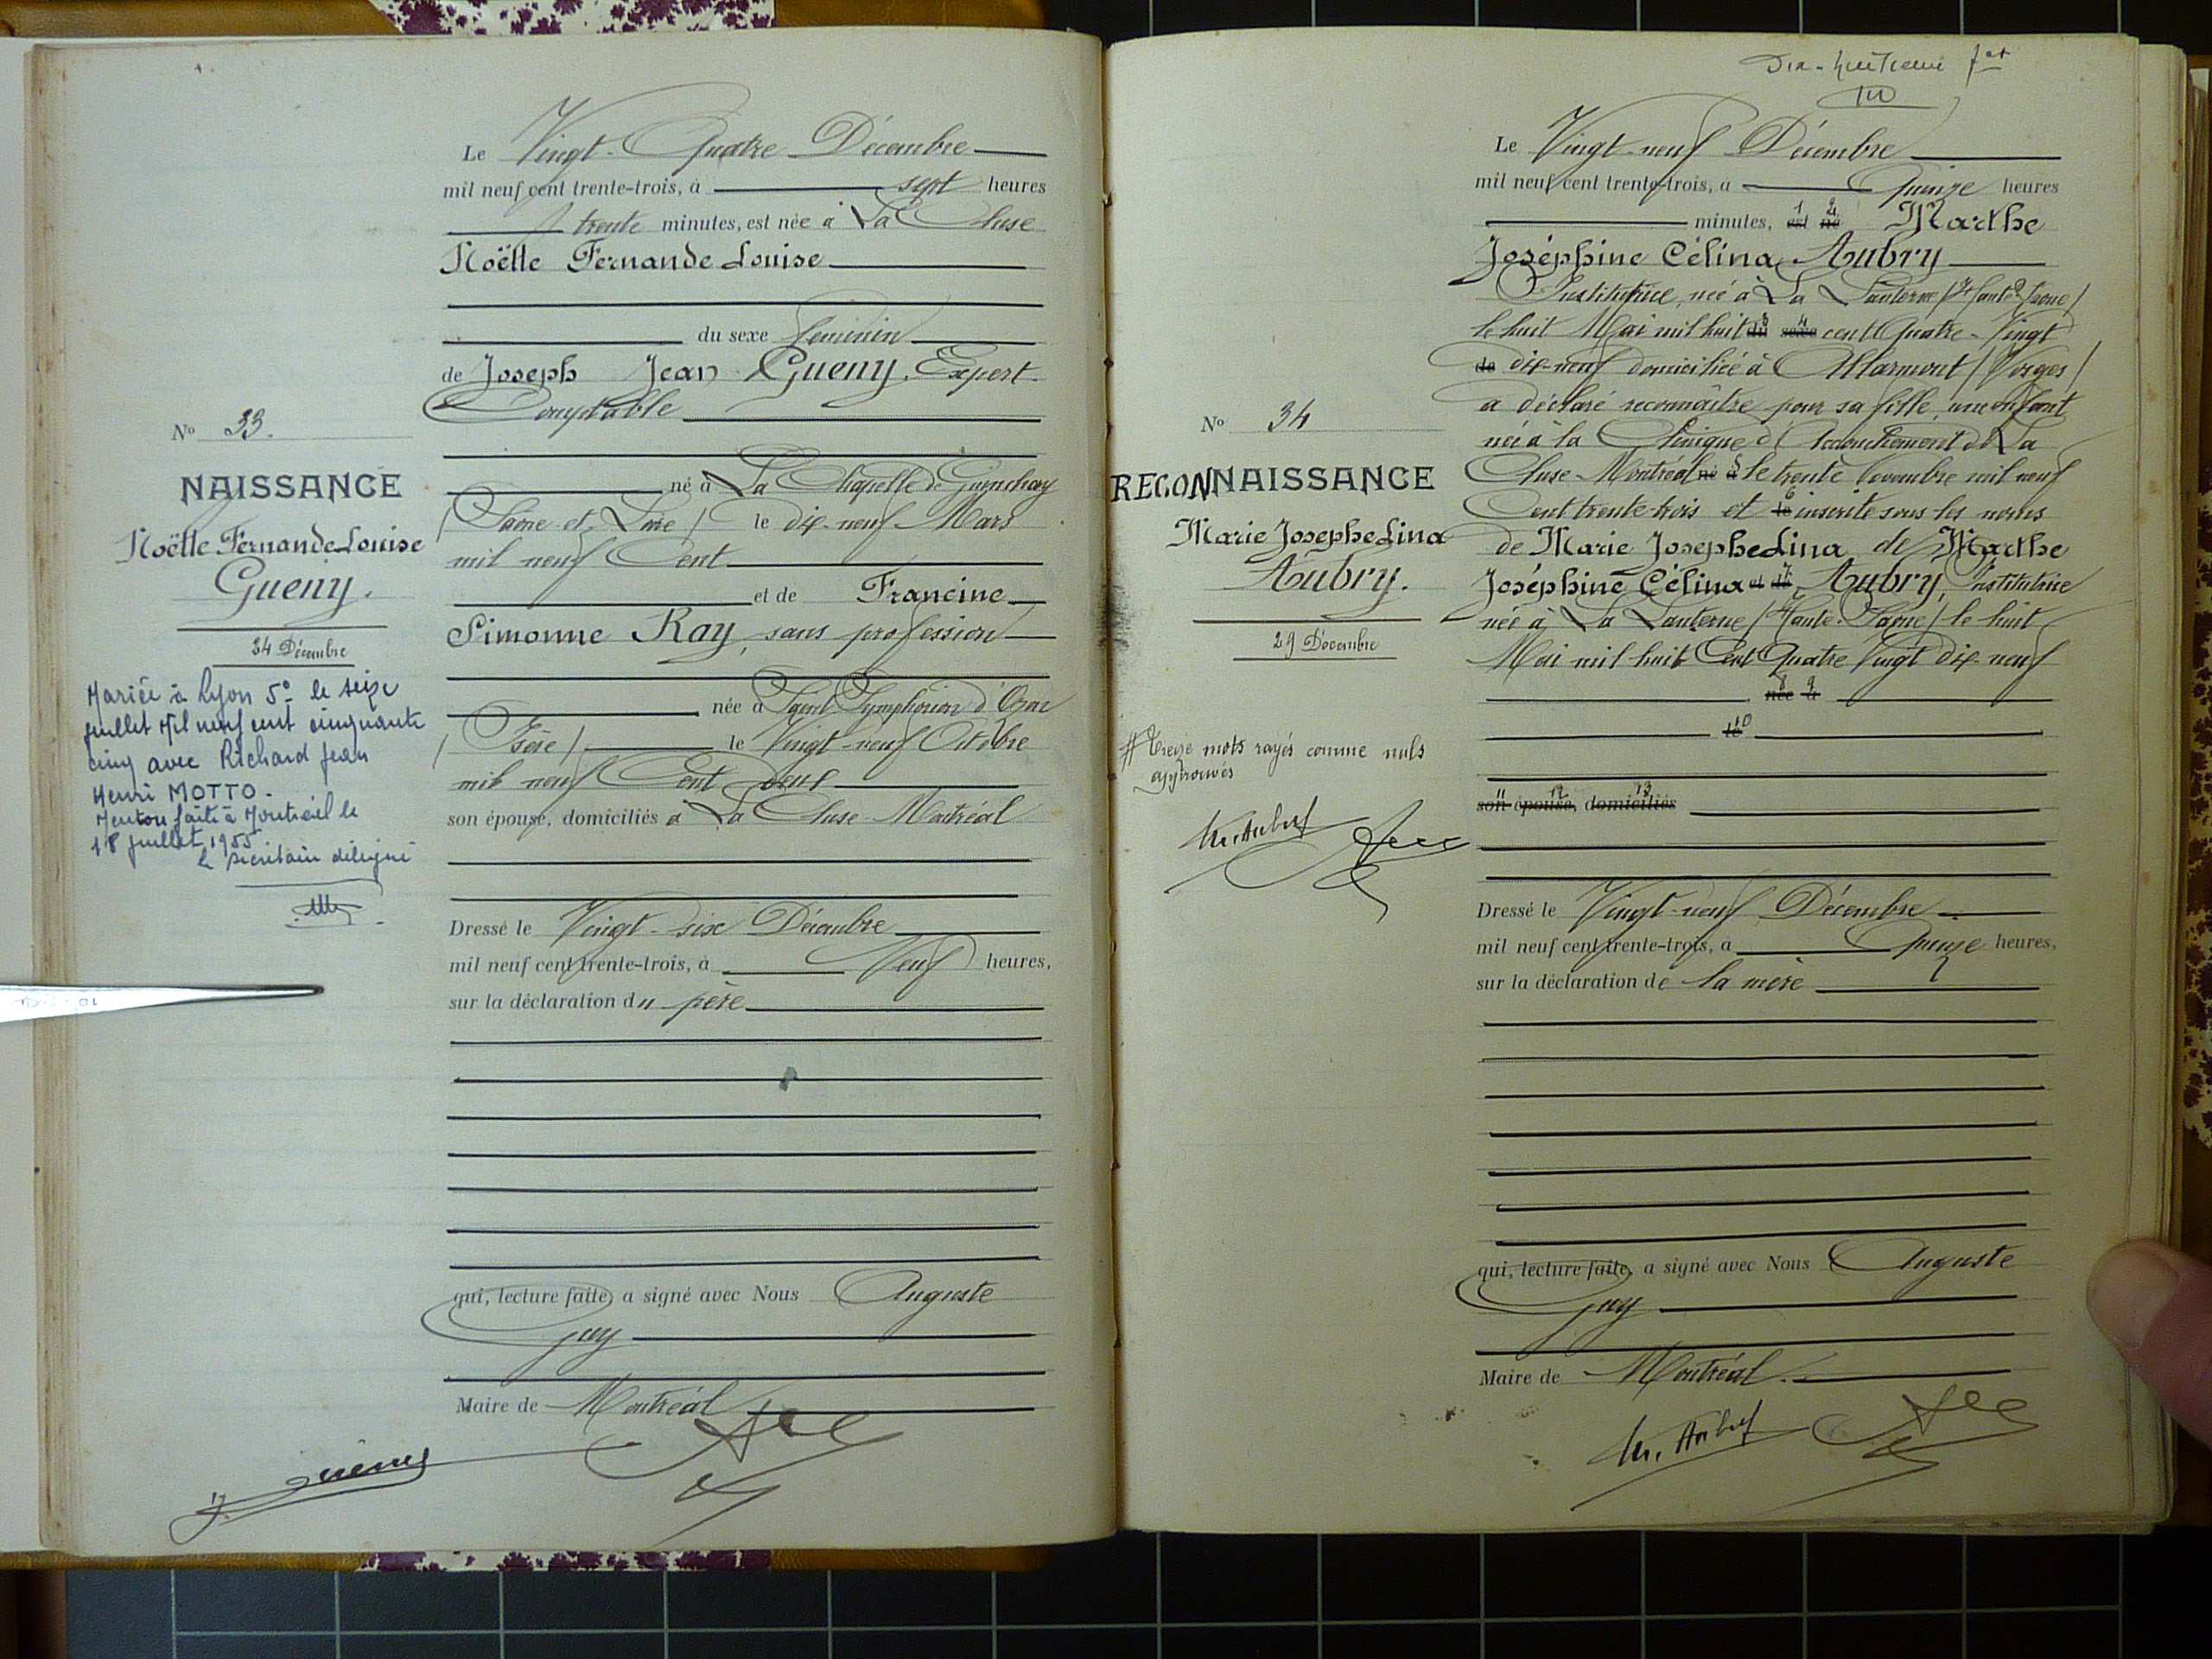 Le Vingt-Quatre Décembre
mil neuf cent trente-trois, à sept heures
trente minutes, est née à La Cluse
Noëlle Fernande Louise
du sexe féminin
de Joseph Jean Gueny, Expert
Comptable
né à La Chapelle de Guinchay
(Saône-et-Loire) le dix-neuf Mars
mil neuf Cent
et de Francine
Simonne Ray, sans profession
née à Saint Symphorien d'Ozon
(Isère) le Vingt-neuf Octobre
mil neuf Cent deux
son épouse, domiciliés à La Cluse Montréal
Dressé le Vingt-six Décembre
mil neuf cent trente-trois, à Neuf heures,
sur la déclaration du père
qui, lecture faite, a signé avec Nous Auguste
Juy
Maire de Montréal
J. Guény
No 33.
NAISSANCE
Noëlle Fernande Louise
Gueny.
24 Décembre
Mariée à Lyon 5e le seize
juillet Mil neuf cent cinquante
cinq avec Richard Jean
Henri MOTTO.
Mention faite à Montréal le
18 juillet 1955
le secrétaire délégué
Dix-huitième fet
Le Vingt-neuf Décembre
mil neuf cent trente-trois, à Quinze heures
minutes, 1 est 2 né Marthe
Joséphine Célina Aubry
Institutrice, née à La Lanterne (Haute-Saône)
le huit Mai mil huit 3 du 4 sexe cent Quatre-Vingt
de dix-neuf domiciliée à Allarmont (Vosges)
a déclaré reconnaître pour sa fille, une enfant
née à la Clinique d'Accouchement de La
Cluse-Montréal né à 5 le trente Novembre mil neuf
Cent trente-trois et 6 le inscrite sous les noms
de Marie Josephe Lina de Marthe
Joséphine Célina et de 7 Aubry, Institutrice
née à La Lanterne (Haute-Saône) le huit
Mai mil huit Cent Quatre Vingt dix-neuf
8 née 9 à
10 le
11 son 12 épouse, 13 domiciliés
Dressé le Vingt-neuf Décembre
mil neuf cent trente-trois, à Quinze heures,
sur la déclaration de la mère
qui, lecture faite, a signé avec Nous Auguste
Juy
Maire de Montréal.
M. Aubry
No 34
RECONNAISSANCE
Marie Josephe Lina
Aubry.
29 Décembre
# Treize mots rayés comme nuls
approuvés
M. Aubry